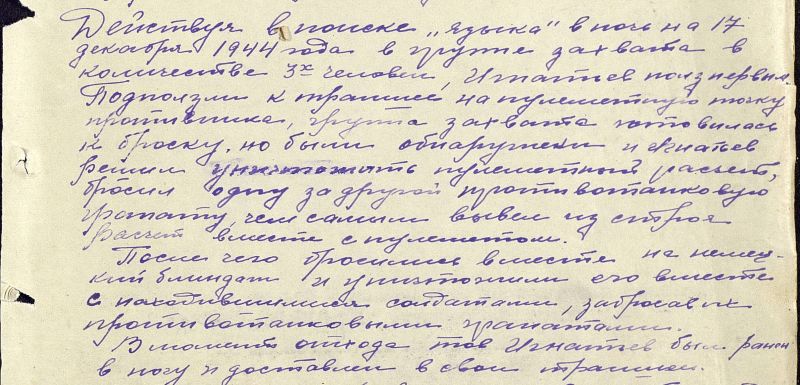 Действуя в поиске „языка" в ночь на 17
декабря 1944 года в группе захвата в
количестве 3х человек, Игнатьев полз первым.
Подползли к траншее на пулеметную точку
противника, группа захвата готовилась
к броску, но были обнаружены и Игнатьев
решил уничтожить пулеметный расчет,
бросил одну за другой противотанковую
гранату, чем самым вывел из строя
расчет вместе с пулеметом.
После чего бросились вместе на немец-
кий блиндаж и уничтожили его вместе
с находившимися солдатами, забросав их
противотанковыми гранатами.
В момент отхода тов Игнатьев был ранен
в ногу и доставлен в свои траншеи.